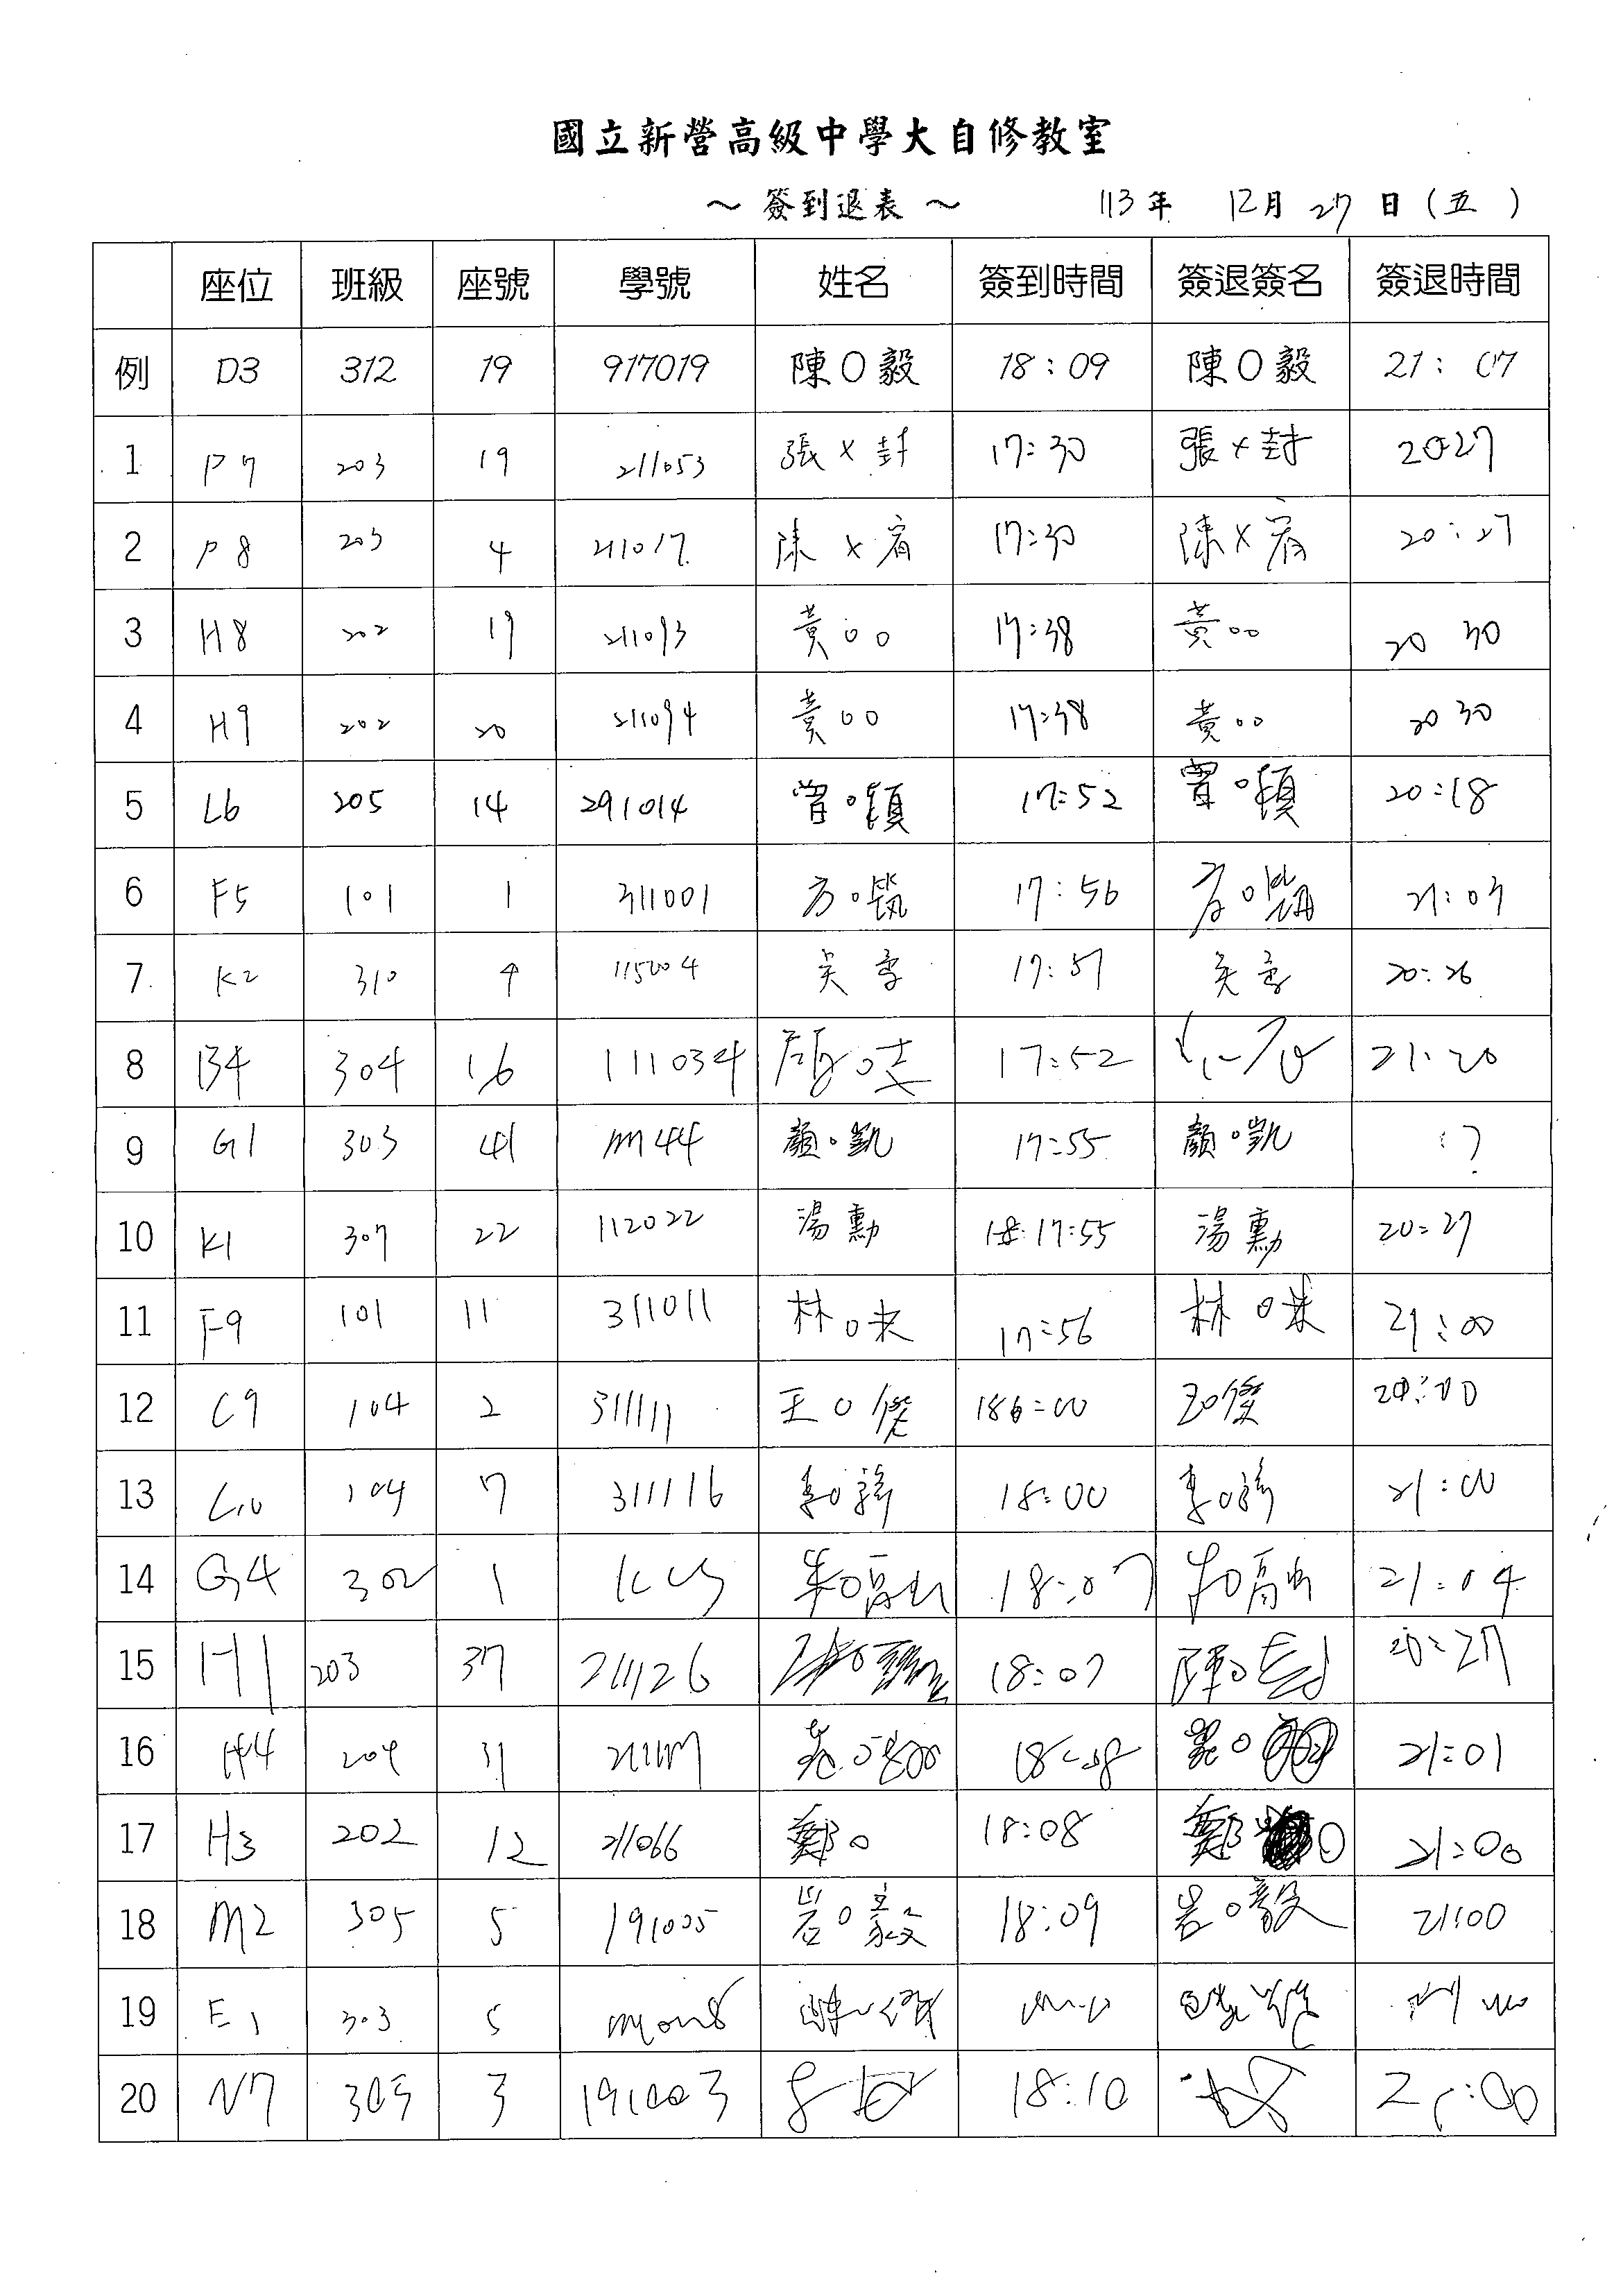 國立新營高級中學大自修教室
～ 簽到退表 ～ 113年 12月 27 日 (五)
座位 班級 座號 學號 姓名 簽到時間 簽退簽名 簽退時間
例 D3 312 19 917019 陳〇毅 18:09 陳〇毅 21:07
1 P7 203 19 211053 張x封 17:30 張x封 2027
2 P8 203 4 211017 陳x宥 17:30 陳x宥 20:27
3 H8 202 19 211093 黃oo 17:38 黃oo 20 30
4 H9 202 20 211094 黃oo 17:38 黃oo 20 30
5 L6 205 14 291014 17:52 20:18
6 F5 101 1 311001 方o筑 17:56 21:07
7 K2 310 9 115004 吴季 17:57 吴季 20:26
8 B4 304 16 111034 17:52 21:20
9 G1 303 41 顏o凱 17:55 顏o凱 :?
10 K1 307 22 112022 湯勳 17:55 湯勳 20:27
11 F9 101 11 311011 林o 17:56 林o 21:00
12 C9 104 2 311111 王o傑 :00
13 C10 104 7 311116 李o 18:00 李o 21:00
14 G4 302 1 朱o 18:07 朱o 21:04
15 H1 203 37 211126 18:07 陳o 20:27
16 H4 204 31 18:08 21:01
17 H3 202 12 211066 鄭o 18:08 鄭 O 21:00
18 M2 305 5 191005 岩o毅 18:09 岩o毅 21:00
19 E1 303 5
20 N7 305 3 191003 18:10 21:00